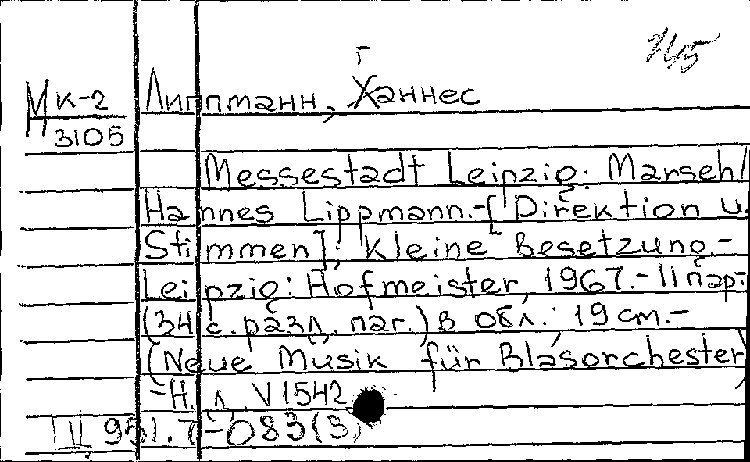 Мк-2 Липпманн, Ханнес
Г
3105
Messestadt Leipzig: Marsch/
Hannes Lippmann.-[Direktion u.
Stimmen]; kleine Besetzung.-
Leipzig: Hofmeister, 1967.- 11 пар-
(34 с. разд. паг.) в обл.; 19 см.-
(Neue Musik für Blasorchester)
-Н.д. V 1542
III 951.7-083(3)